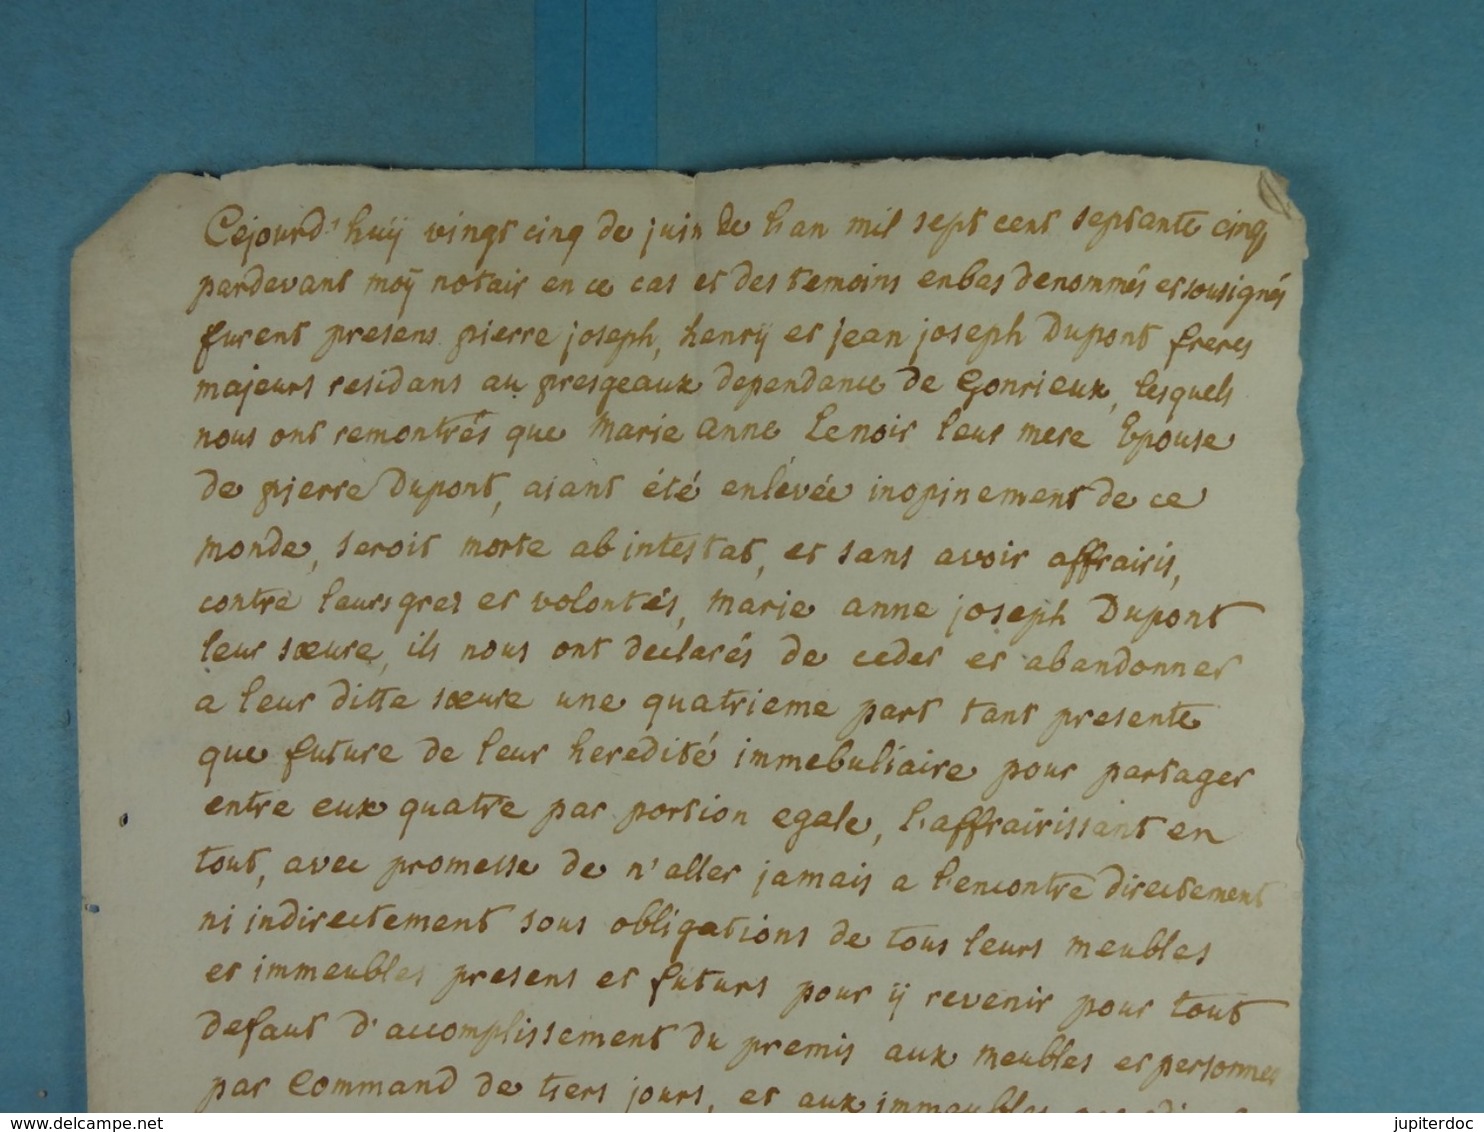 Cejourd'huÿ vingt cinq de juin de l'an mil sept cent septante cinq
pardevant moÿ notair en ce cas et des temoins enbas denommés et sousignés
furent presens pierre joseph, henrÿ et jean joseph Dupont freres
majeurs residans au presgeaux dependance de Gonrieux, lesquels
nous ont remontrés que Marie Anne Lenoir leur mere Epouse
de pierre Dupont, aiant été enlévée inopinement de ce
monde, seroit morte ab intestat, et sans avoir affrairis,
contre leurs grez et volontés, Marie anne joseph Dupont
leur sœure, ils nous ont declarés de ceder et abandonner
a leur ditte sœure une quatrieme part tant presente
que future de leur heredité immebuliaire pour partager
entre eux quatre par portion egale, l'affrairissant en
tout, avec promesse de n'aller jamais a l'encontre directement
ni indirectement sous obligations de tous leurs meubles
et immeubles presens et futurs pour ÿ revenir pour tout
defaut d'accomplissement du premis aux meubles et personnes
par Command de tiers jours, et aux immeubles
jupiterdoc
delcampe.net